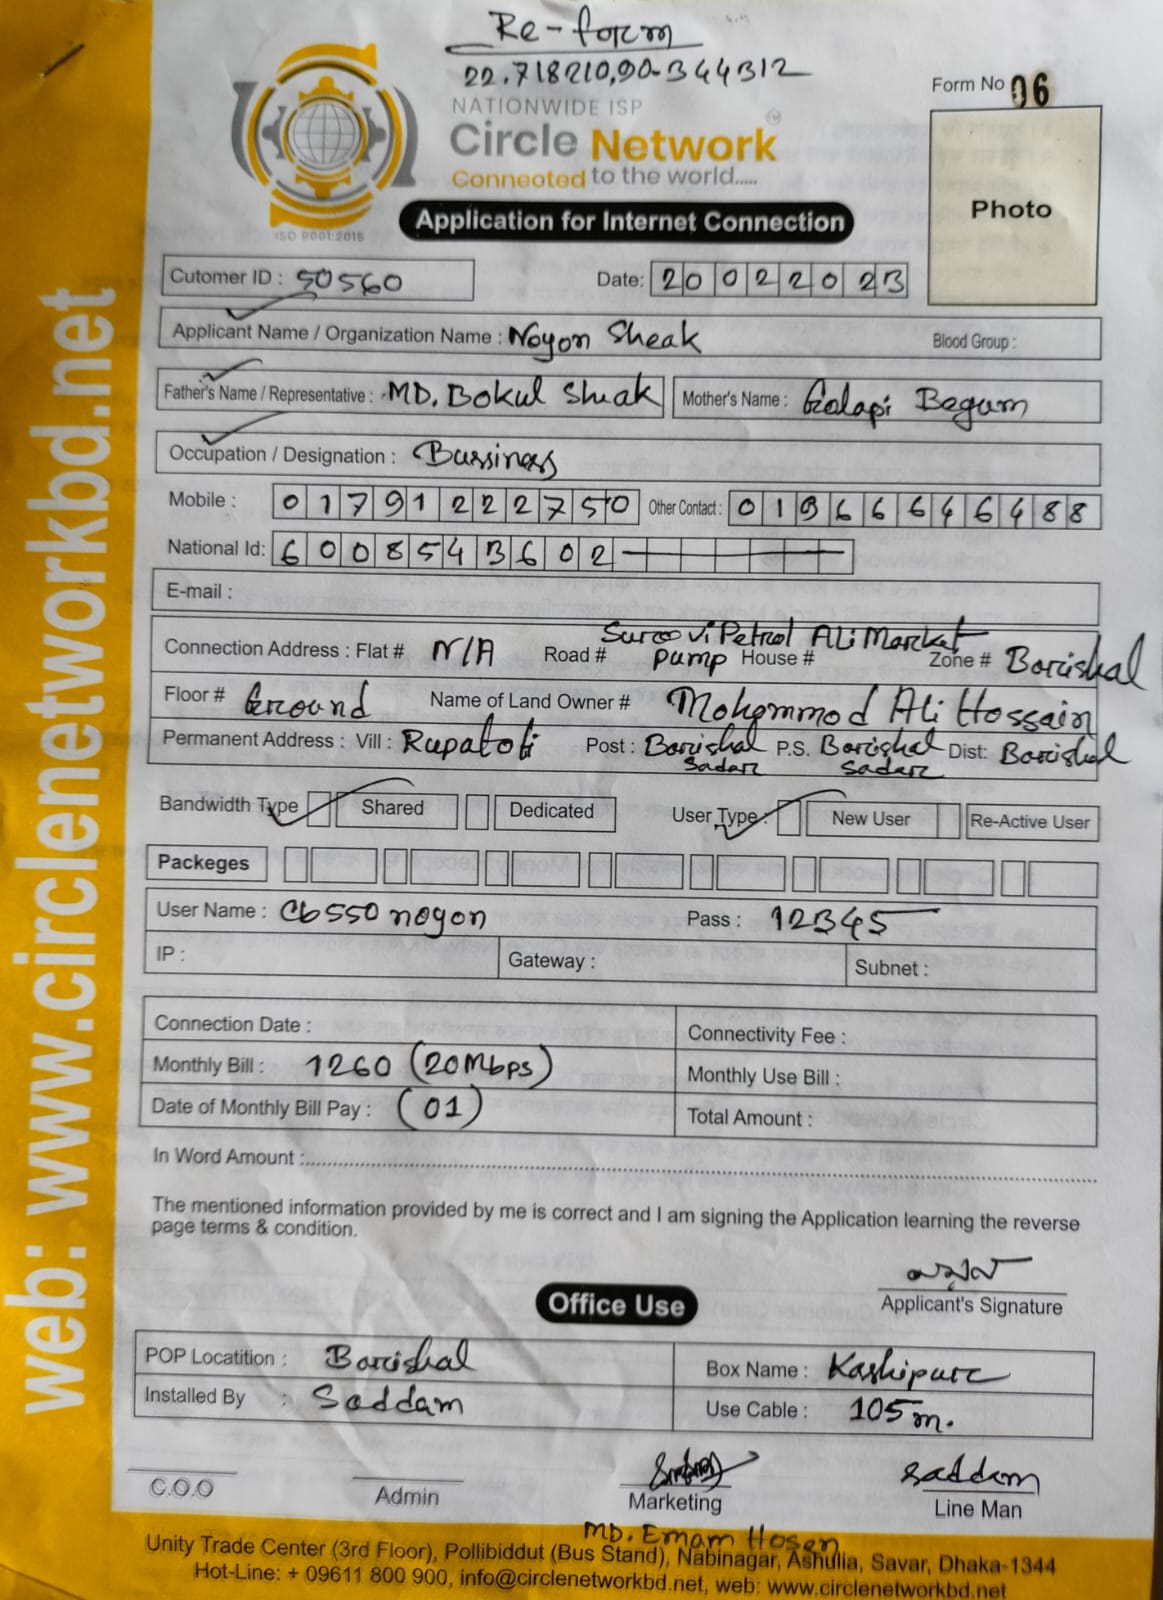 Re-form
22.718210,90.344312
Form No 06
NATIONWIDE ISP
Circle Network
Connected to the world.....
ISO 9001:2015
Photo
Application for Internet Connection
Cutomer ID : 50560 Date: 20022023
Applicant Name / Organization Name : Noyon Sheak Blood Group :
Father's Name / Representative : MD. Bokul Sheak Mother's Name : Golapi Begum
Occupation / Designation : Bussiness
Mobile : 01791222750 Other Contact : 01966646488
National Id: 6008543602
E-mail :
Connection Address : Flat # N/A Road # Suroovi Petrol Pump House # Ali Market Zone # Barishal
Floor # Ground Name of Land Owner # Mohammod Ali Hossain
Permanent Address : Vill : Rupatoli Post : Barishal Sadar P.S. Barishal Sadar Dist: Barishal
Bandwidth Type Shared Dedicated User Type : New User Re-Active User
Packeges
User Name : cb550noyon Pass : 12345
IP : Gateway : Subnet :
Connection Date : Connectivity Fee :
Monthly Bill : 1260 (20Mbps) Monthly Use Bill :
Date of Monthly Bill Pay : (01) Total Amount :
In Word Amount :
The mentioned information provided by me is correct and I am signing the Application learning the reverse
page terms & condition.
Applicant's Signature
Office Use
POP Locatition : Barishal Box Name : Kashipur
Installed By : Saddam Use Cable : 105m.
C.O.O Admin Marketing Saddam Line Man
MD. Emam Hosen
Unity Trade Center (3rd Floor), Pollibiddut (Bus Stand), Nabinagar, Ashulia, Savar, Dhaka-1344
Hot-Line: + 09611 800 900, info@circlenetworkbd.net, web: www.circlenetworkbd.net
web: www.circlenetworkbd.net